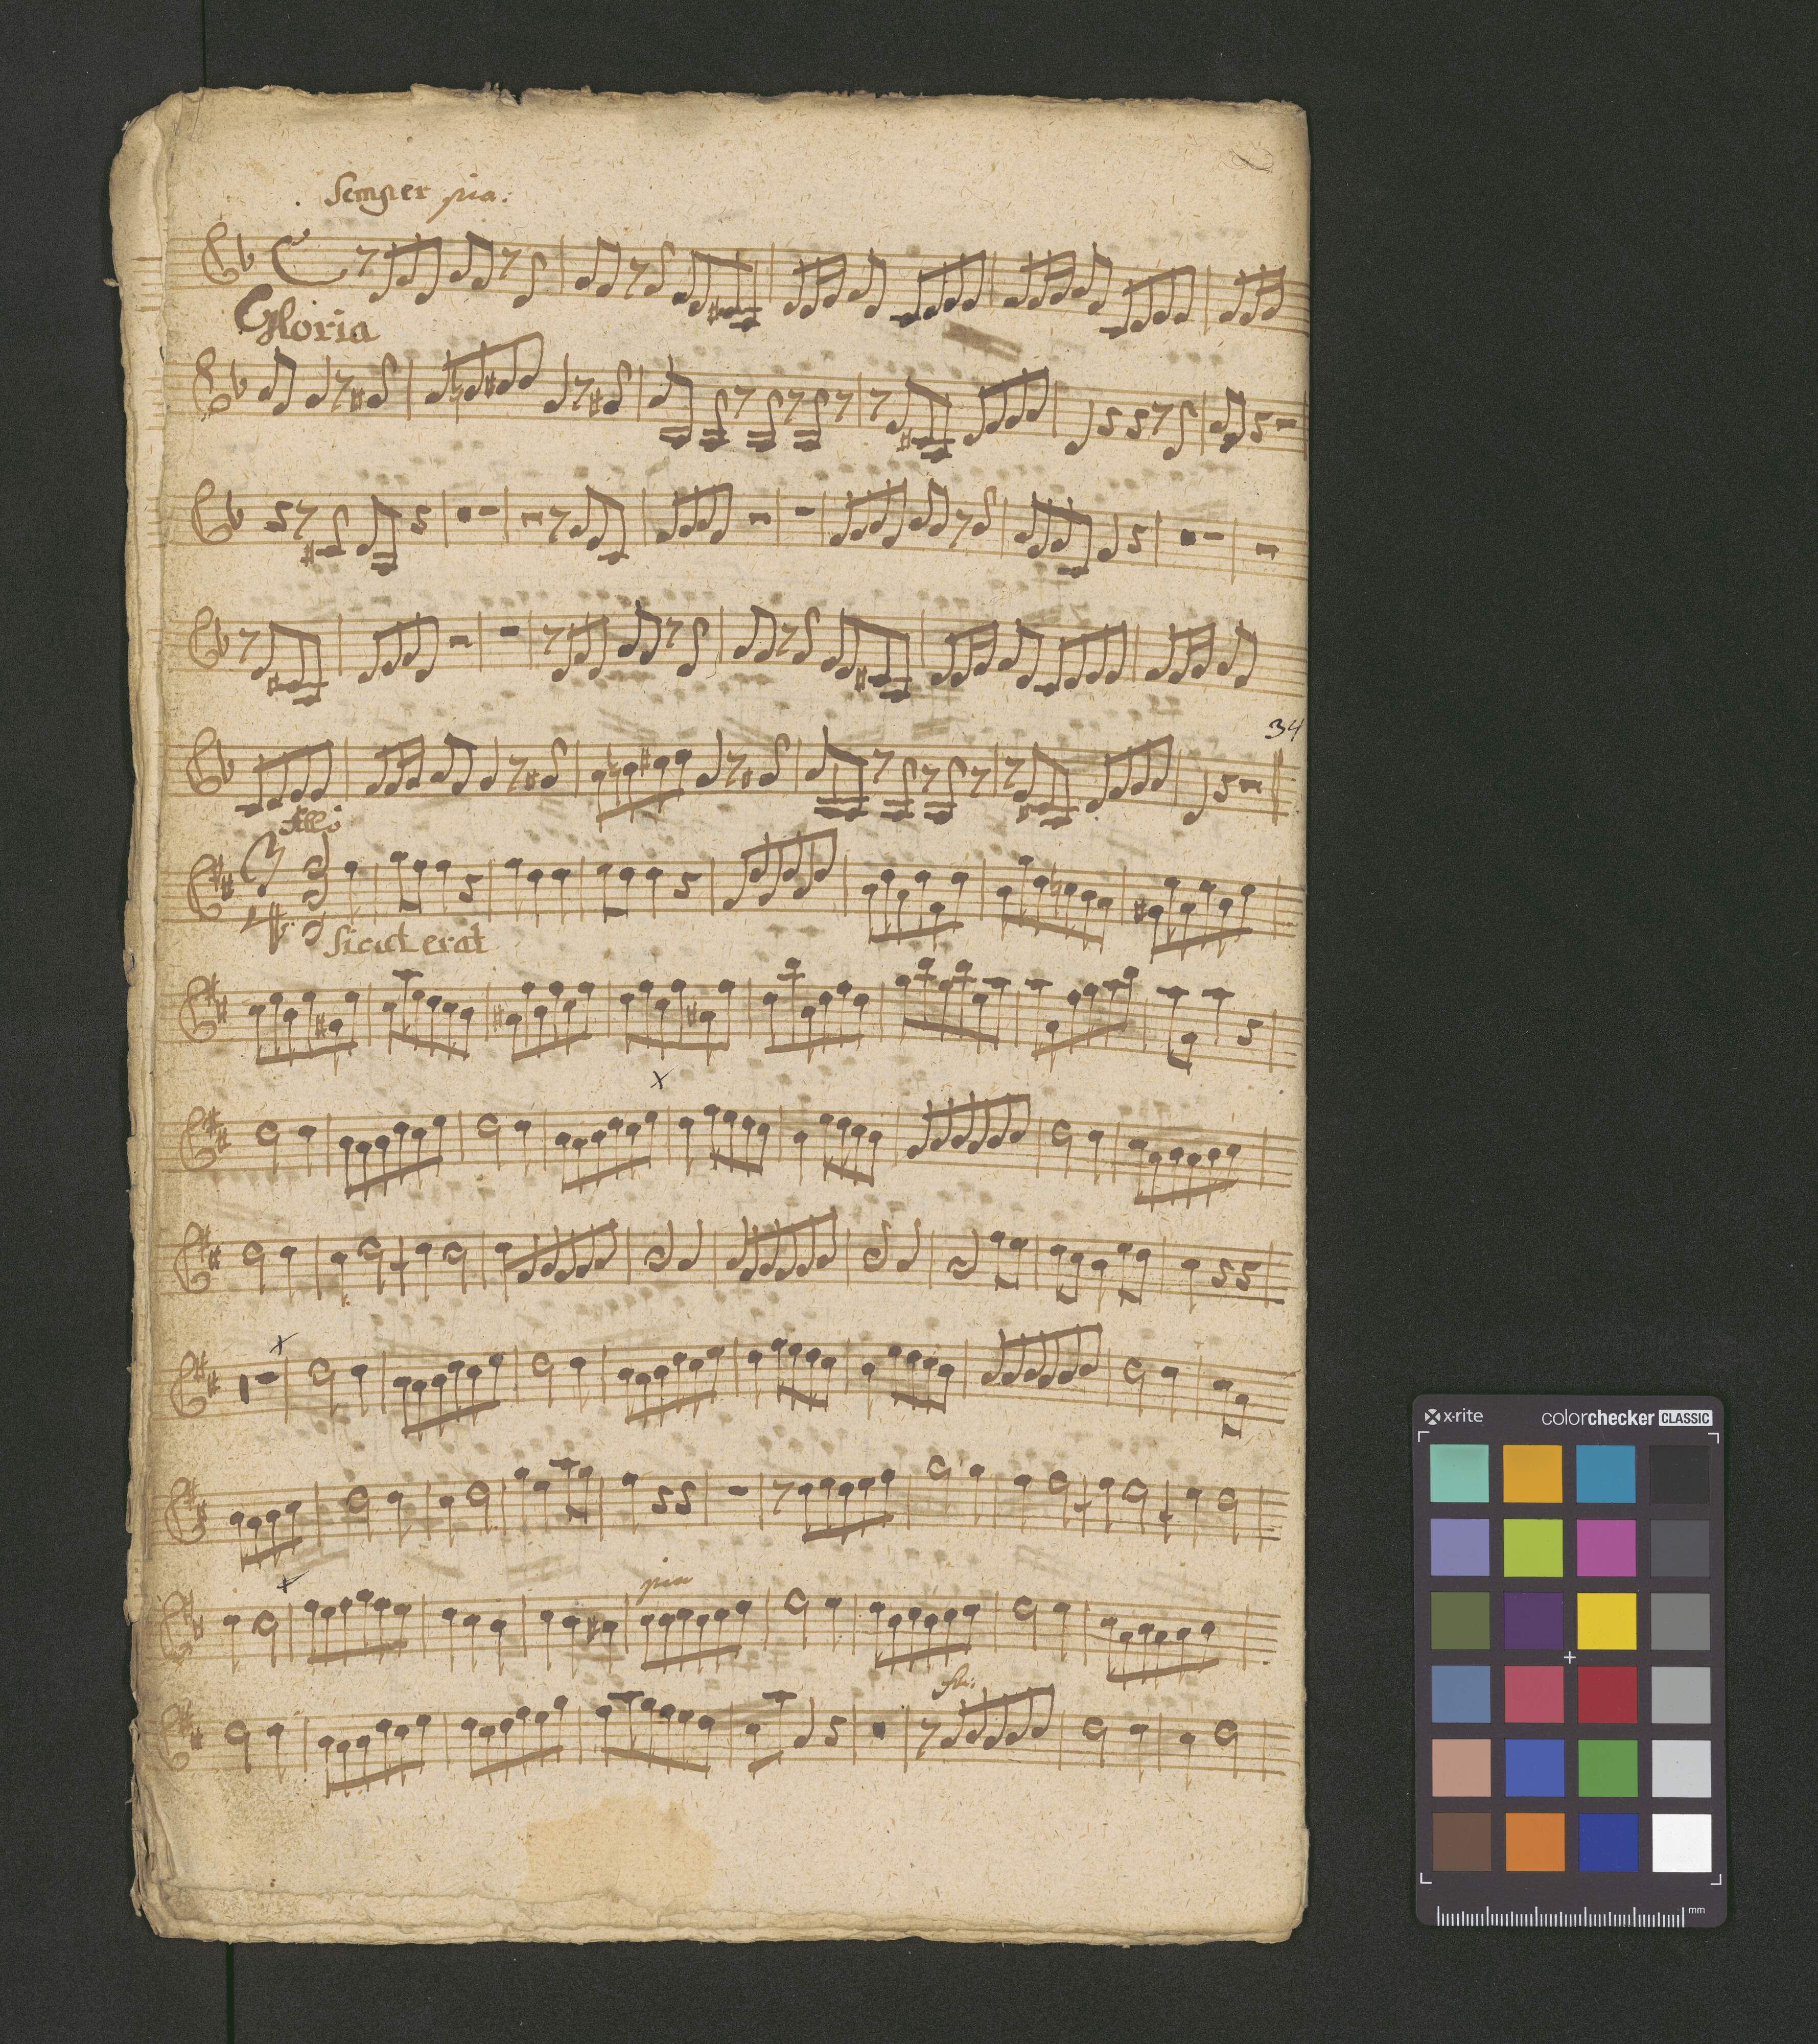 Semper pia:
Gloria
34
All⁰
Sicut erat
pia
x·rite
colorchecker CLASSIC
mm